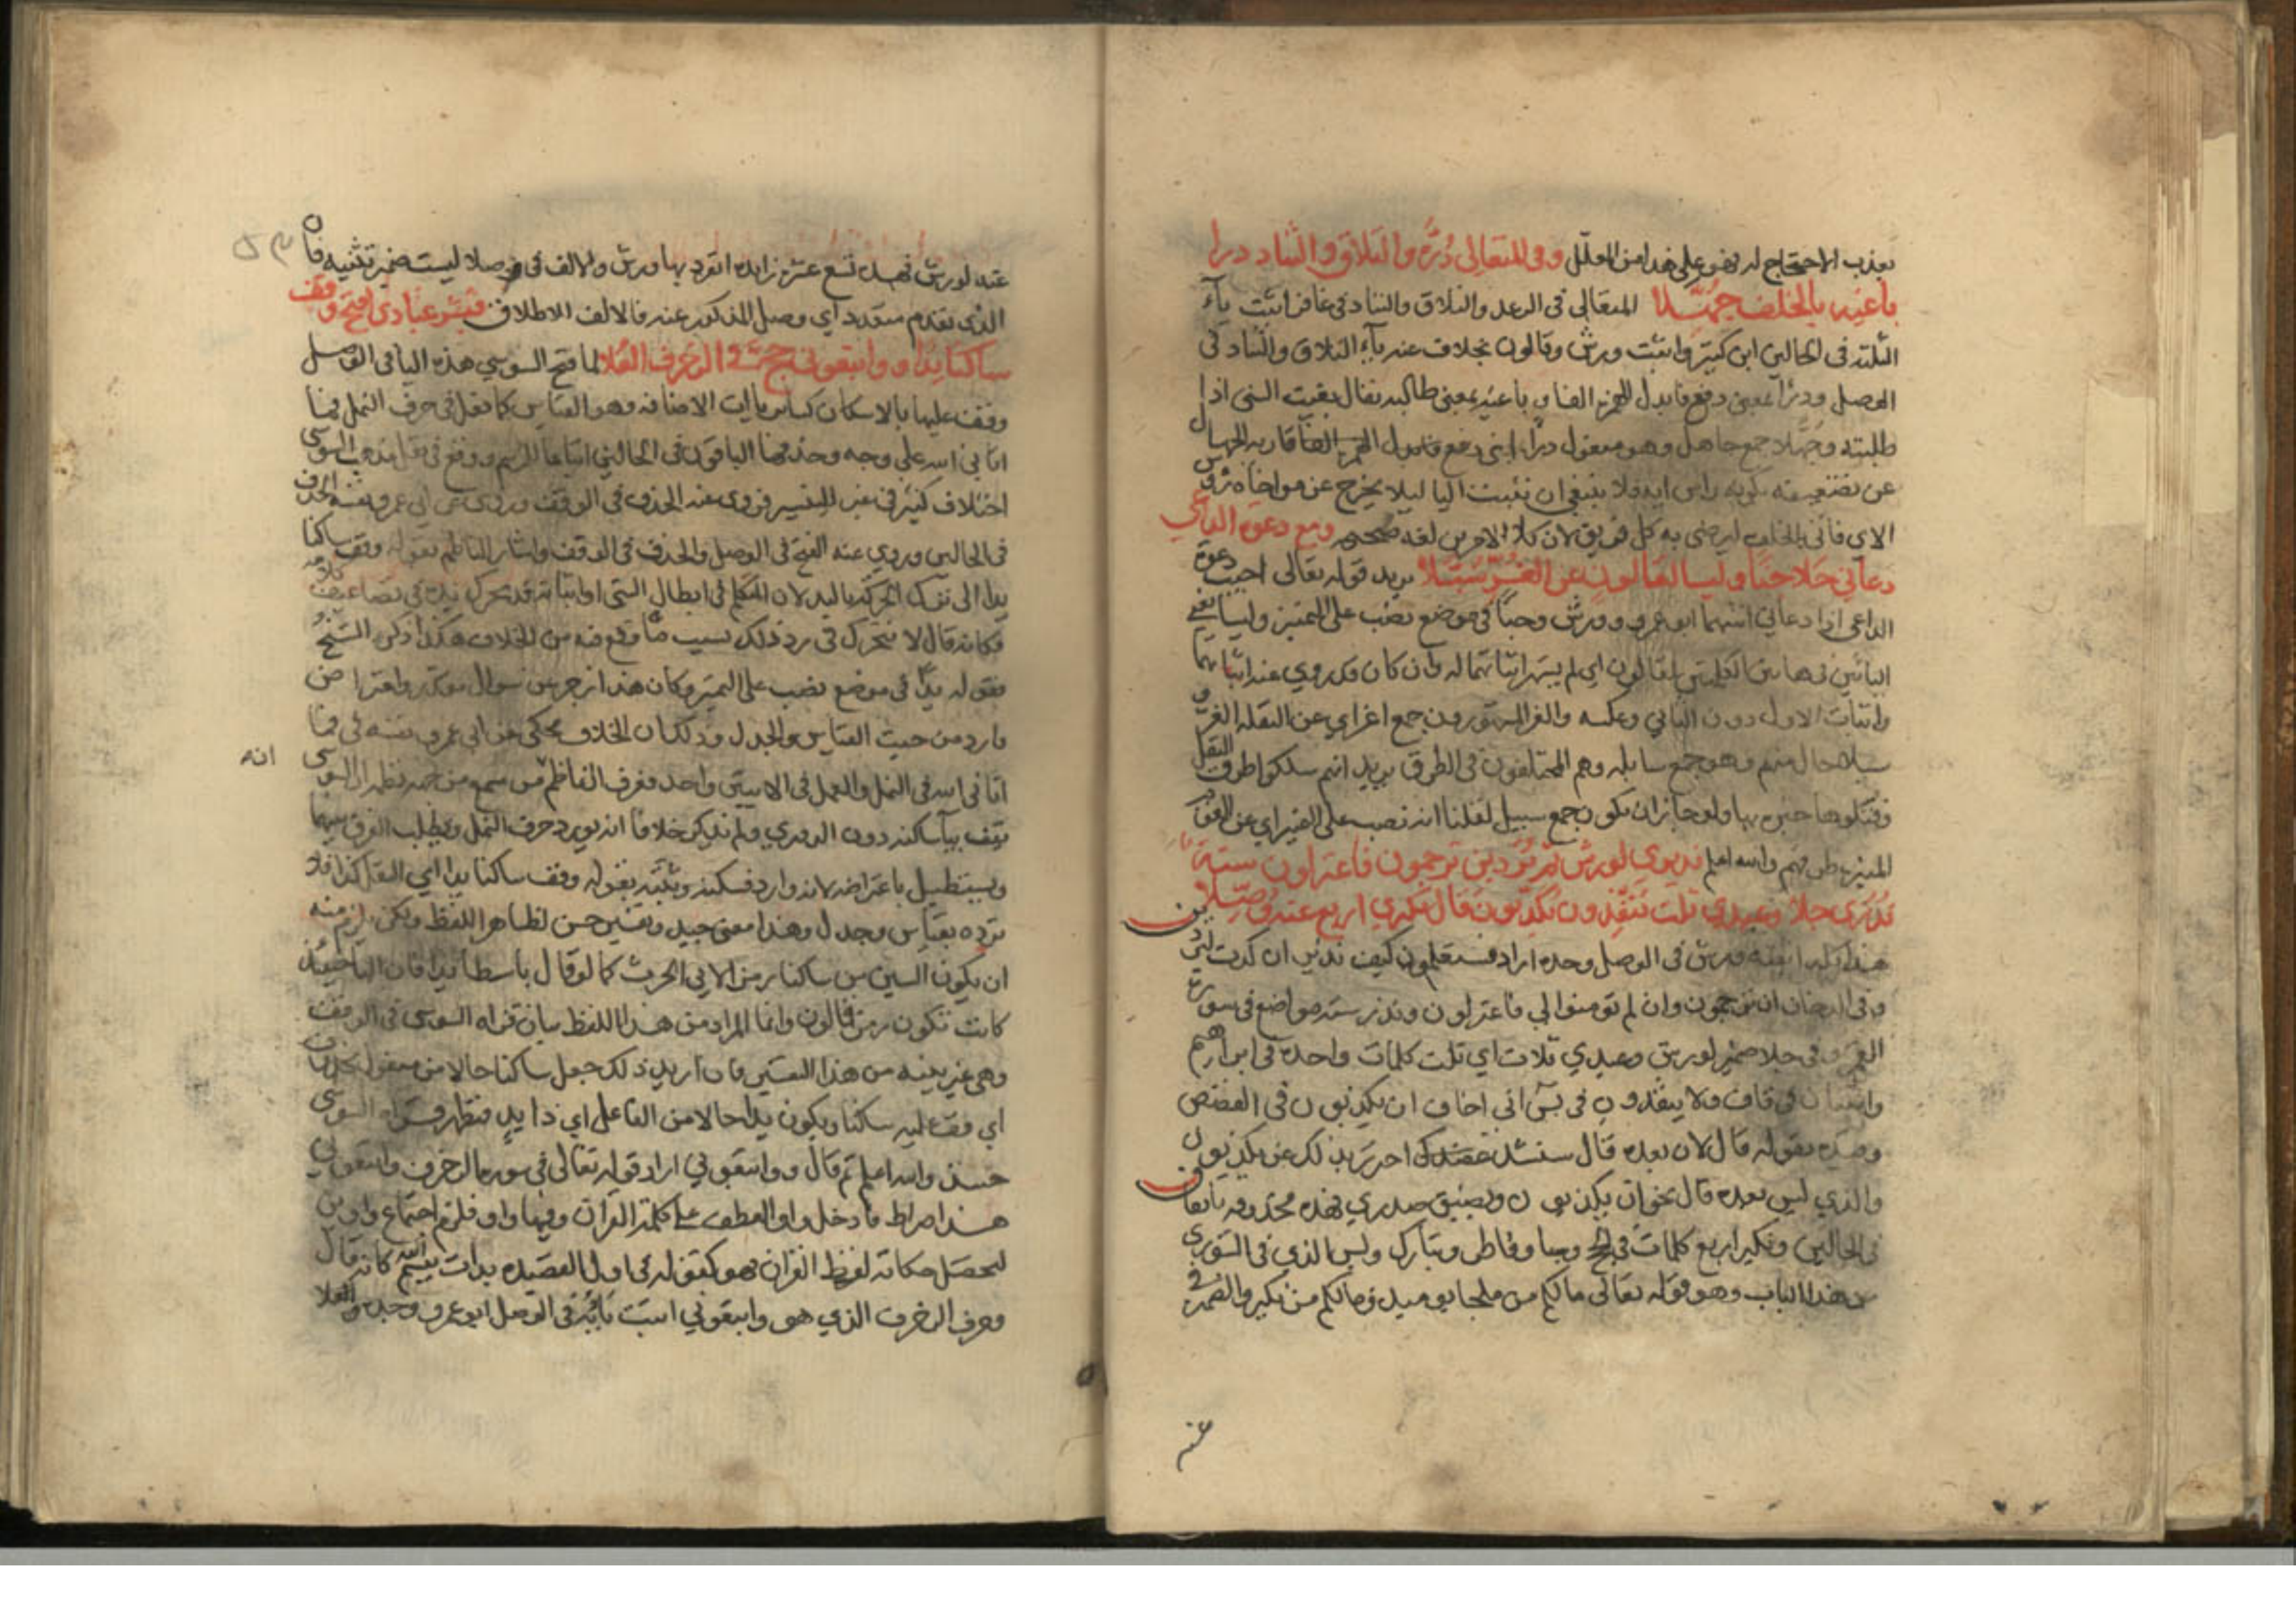 بعذب الاحتجاج له فهو على هذا من المعلل وفى المتعالى دُرُّه والتلاق والتناد درا
باغيه بالخلف جُهّلا المتعالى فى الرعد والتلاق والتناد فى غافر اثبت ياء
الثلثة فى الحالين ابن كثير واثبت ورش وقالون بخلاف عنه ياء التلاق والتناد فى
الوصل ودرأ بمعنى دفع فابدل الهمز الفا وباغيه بمعنى طالبه يقال بغيت الشى اذا
طلبته وجهلا جمع جاهل وهو مفعول درا اى دفع فابدل الهمز الفا قاريه الجهال
عن تضعيفه بكونه راس اية فلا ينبغى ان تثبت اليا ليلا يخرج عن مواخاة رؤس
الاى فاتى بالخلف ليرضى به كل فريق لان كلا الامرين لغه صحيحه ومع دعوة الداعي
دعاني حلا جنًا وليسا لقالون عن الغُرّ سُبّلا يريد قوله تعالى اجيب دعوة
الداعى اذا دعاني اثبتهما ابو عمرو وورش وجنًا فى موضع نصب على التمييز وليسا يعنى
اليائين فى هاتين الكلمتين لقالون اى لم يشهر اثباتهما له وان كان قد روي عنه اثباتهما
واثبات الاول دون الثاني وعكسه والغر المشهورون جمع اغر اي عن النقله الغرّ و
سبلا حال منهم وهو جمع سابله وهم المختلفون فى الطرق يريد انهم سلكوا طرق النقل
خبره بها ولو جاز ان يكون جمع سبيل لقلنا انه نصب على التمييز اي عن القوم
المنيره طرقهم والله اعلم نذيري لورش ثم تُردين ترجمون فاعتزلون ستة
نُذُري جلا وعيدي ثلث يُنقِذون يُكذّبون قال نكيري اربع عنه وُصّلا
هذا كله اثبته ورش فى الوصل وحده اراد فستعلمون كيف نذير ان كدت لتردين
وفى الدخان ان ترجمون وان لم تومنوا لي فاعتزلون ونذر ستة مواضع فى سورة
القمر وفى جلا ضمير لورش وعيدي ثلاث اي ثلث كلمات واحدة فى ابراهيم
واثنتان فى قاف ولا ينقذون فى يس انى اخاف ان يكذبون فى القصص
وقيده بقوله قال لان بعده قال سنشد عضدك احترز بذلك عن يكذبون
والذي ليس بعده قال نحو ان يكذبون ويضيق صدري فهذه محذوفه باتفاق
فى الحالين ونكير اربع كلمات فى الحج وسبا وفاطر وتبارك وليس الذي فى الشورى
من هذا الباب وهو قوله تعالى ما لكم من ملجا يوميذ وما لكم من نكير والضمير فى
عنه
عنه لورش فهذه تسع عشره زايده انفرد بها ورش والالف فى وصلا ليست ضمير تثنيه فان
الذى تقدم متعدد اي وصل المذكور عنه فالالف للاطلاق فبشر عبادى افتح وقف
ساكنا يدًا وواتبعونى حج فى الزخرف العُلا لما فتح السوسي هذه اليا فى الوصل
وقف عليها بالاسكان كساير ياات الاضافه وهو القياس كما فعل فى حرف النمل فما
اتاني الله على وجه وحذفها الباقون فى الحالين اتباعا للرسم ووقع فى نقل مذهب السوسى
اختلاف كثير فى غير التيسير فروى عنه الحذف فى الوقف وروى عن ابي عمرو نفسه الحذف
فى الحالين وروي عنه الفتح فى الوصل والحذف فى الوقف واشار الناظم بقوله وقف ساكنا
يدا الى ترك الحركة باليد لان المتكلم فى ابطال الشى او اثباته قد يتحرك يده فى تضاعيف كلامه
فكانه قال لا تتحرك فى رد ذلك بسبب ما وقع فيه من الخلاف هكذا ذكره الشيخ
فقوله يدًا فى موضع نصب على التمييز وكان هذا زجر عن سوال مقدر واعتراض
وارد من حيث القياس والجدل وذلك ان الخلاف محكى عن ابي عمرو نفسه فى فما
اتانى الله فى النمل والعمل فى الاثنين واحد فعرف الناظم من سمع من جهه نظره ان السوسى
انه
يقف بياء ساكنه دون الدوري ولم يذكر خلافا انه يورد حرف النمل ويطلب الفرق بينهما
ويستطيل باعتراضه لانه وارد فسكنه وثبّته بقوله وقف ساكنا يدا اي النقل كذا فلا
ترده بقياس وجدل وهذا معنى جيد وتفسير حسن لظاهر اللفظ ولكن يلزم منه
ان يكون السين من ساكنا رمز الابى الحرث كما لو قال باسطا يدا فان البا حينيذ
كانت تكون رمز قالون وانما المراد من هذا اللفظ بيان قراة السوسى فى الوقف
وهى غير بينه من هذا التفسير فان اريد ذلك جعل ساكنا حالا من مفعول محذوف
اي وقف عليه ساكنا ويكون يدا حالا من الفاعل اي ذا يد فتظهر قراة السوسى
حسن والله اعلم ثم قال وواتبعوني اراد قوله تعالى فى سورة الزخرف واتبعوني
هذا صراط فادخل واو العطف على كلمة القران وفيها واو فلزم اجتماع واوين
ليحصل حكاية لفظ القران فهو كقوله فى اول القصيده بدات ببسم الله كانه قال
وحرف الزخرف الذي هو واتبعوني اثبت ياءه فى الوصل ابو عمرو وحده والعلا